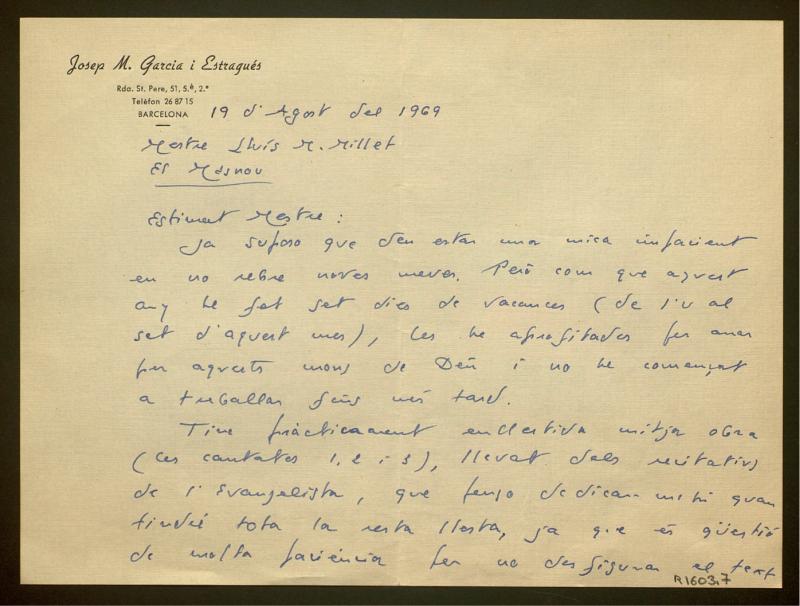 Josep M. Garcia i Estragués
Rda. St. Pere, 51, 5.è, 2.ª
Telèfon 26 87 15
BARCELONA
19 d'Agost del 1969
Mestre Lluís M. Millet
El Masnou
Estimat Mestre:
Ja suposo que deu estar una mica impacient
en no rebre noves meves. Però com que aquest
any he fet set dies de vacances (de l'u al
set d'aquest mes), les he aprofitades per anar
per aquests mons de Déu i no he començat
a treballar fins més tard.
Tinc pràcticament enllestida mitja obra
(les cantates 1, 2 i 3), llevat dels recitatius
de l'Evangelista, que penso dedicar-m'hi quan
tindré tota la resta llesta, ja que és qüestió
de molta paciència per no desfigurar el text
R.1603,7